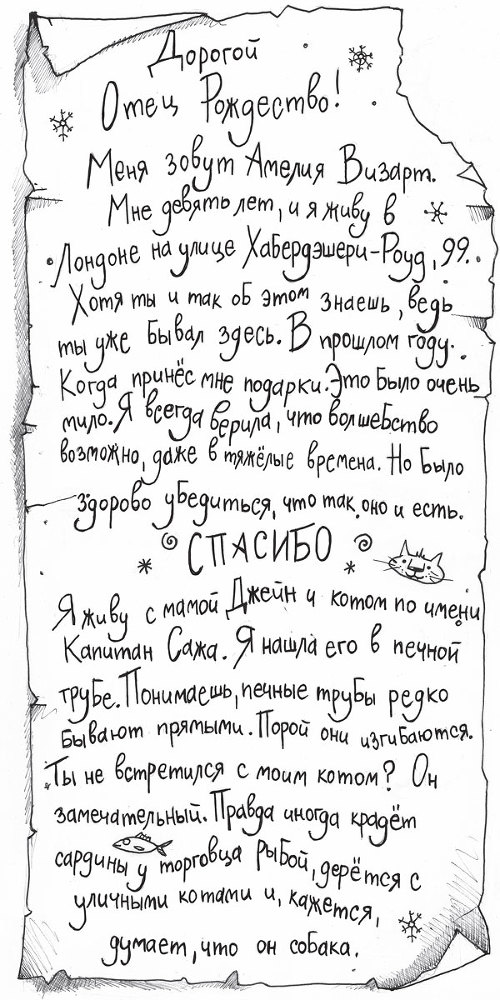 Дорогой
Отец Рождество!
Меня зовут Амелия Визарт.
Мне девять лет, и я живу в
Лондоне на улице Хабердэшери-Роуд, 99.
Хотя ты и так об этом знаешь, ведь
ты уже бывал здесь. В прошлом году.
Когда принёс мне подарки. Это было очень
мило. Я всегда верила, что волшебство
возможно, даже в тяжёлые времена. Но было
здорово убедиться, что так оно и есть.
СПАСИБО
Я живу с мамой Джейн и котом по имени
Капитан Сажа. Я нашла его в печной
трубе. Понимаешь, печные трубы редко
бывают прямыми. Порой они изгибаются.
Ты не встретился с моим котом? Он
замечательный. Правда иногда крадёт
сардины у торговца рыбой, дерётся с
уличными котами и, кажется,
думает, что он собака.